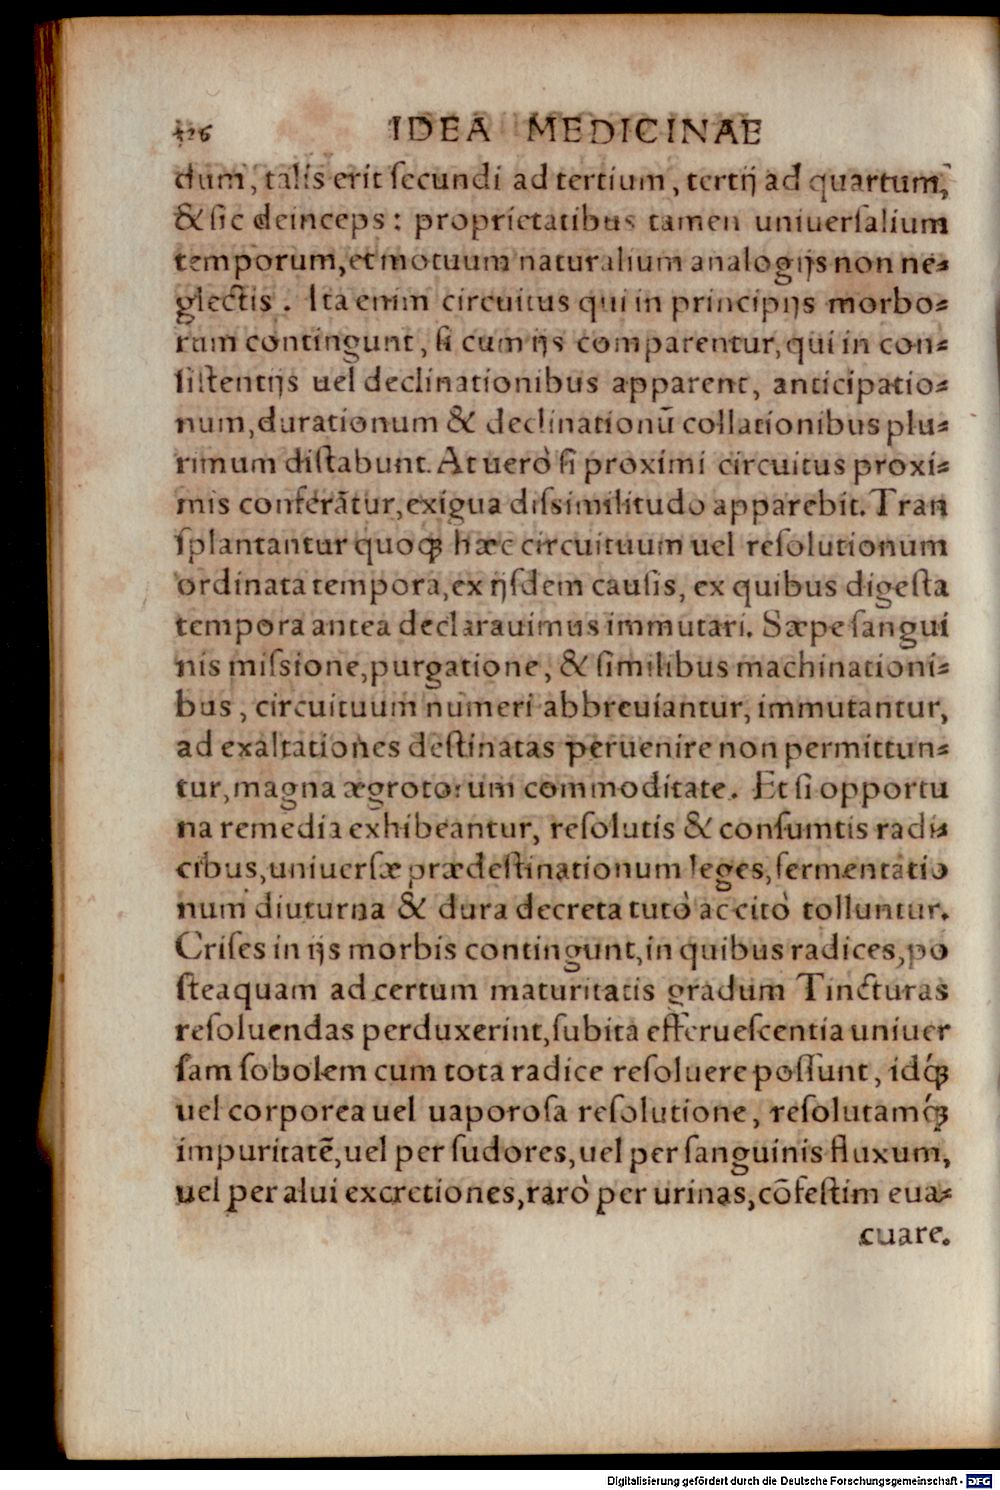 326 IDEA MEDICINAE
dum, talis erit ſecundi ad tertium, tertij ad quartum,
& ſic deinceps: proprietatibus tamen uniuerſalium
temporum, et motuum naturalium analogijs non ne-
glectis. Ita enim circuitus qui in principijs morbo-
rum contingunt, ſi cum ijs comparentur, qui in con-
ſiſtentijs uel declinationibus apparent, anticipatio-
num, durationum & declinationū collationibus plu-
rimum diſtabunt. At uerò ſi proximi circuitus proxi-
mis conferātur, exigua diſsimilitudo apparebit. Tran
ſplantantur quoqꝫ hæc circuituum uel reſolutionum
ordinata tempora, ex ijſdem cauſis, ex quibus digeſta
tempora antea declarauimus immutari. Sæpe ſangui
nis miſsione, purgatione, & ſimilibus machinationi-
bus, circuituum numeri abbreuiantur, immutantur,
ad exaltationes deſtinatas peruenire non permittun-
tur, magna ægrotorum commoditate. Et ſi opportu
na remedia exhibeantur, reſolutis & conſumtis radi-
cibus, uniuerſæ prædeſtinationum leges, fermentatio
num diuturna & dura decreta tutò ac citò tolluntur.
Criſes in ijs morbis contingunt, in quibus radices, po
ſteaquam ad certum maturitatis gradum Tincturas
reſoluendas perduxerint, ſubita efferueſcentia uniuer
ſam ſobolem cum tota radice reſoluere poſſunt, idqꝫ́
uel corporea uel uaporoſa reſolutione, reſolutamqꝫ́
impuritatē, uel per ſudores, uel per ſanguinis fluxum,
uel per alui excretiones, rarò per urinas, cōfeſtim eua-
cuare.
Digitalisierung gefördert durch die Deutsche Forschungsgemeinschaft - DFG